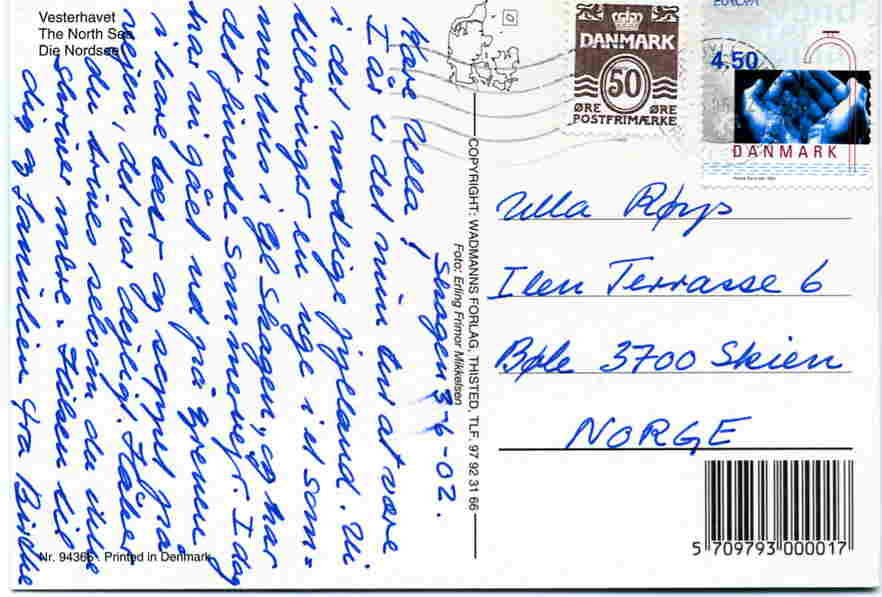 Vesterhavet
The North Sea
Die Nordsee
Skagen 3-6-02.
Kære Ulla!
I år er det min tur at være
i det nordlige jylland. Vi
tilbringer en uge i et som=
merhus i Gl Skagen, og har
det fineste sommervejr. I dag
har vi gået ud på grenen
i bare tæer og soppet på
vejen, det var dejligt. Håber
du trives selvom du ikke
skriver mere. Hilsen til
dig og familien fra Birthe
Nr. 94366 Printed in Denmark
COPYRIGHT: WADMANNS FORLAG, THISTED, TLF. 97 92 31 66
Foto: Erling Frimor Mikkelsen
DANMARK
50
ØRE ØRE
POSTFRIMÆRKE
EUROPA
4.50
DANMARK
Ulla Røys
Ilen Terrasse 6
Bøle 3700 Skien
NORGE
5 709793 000017